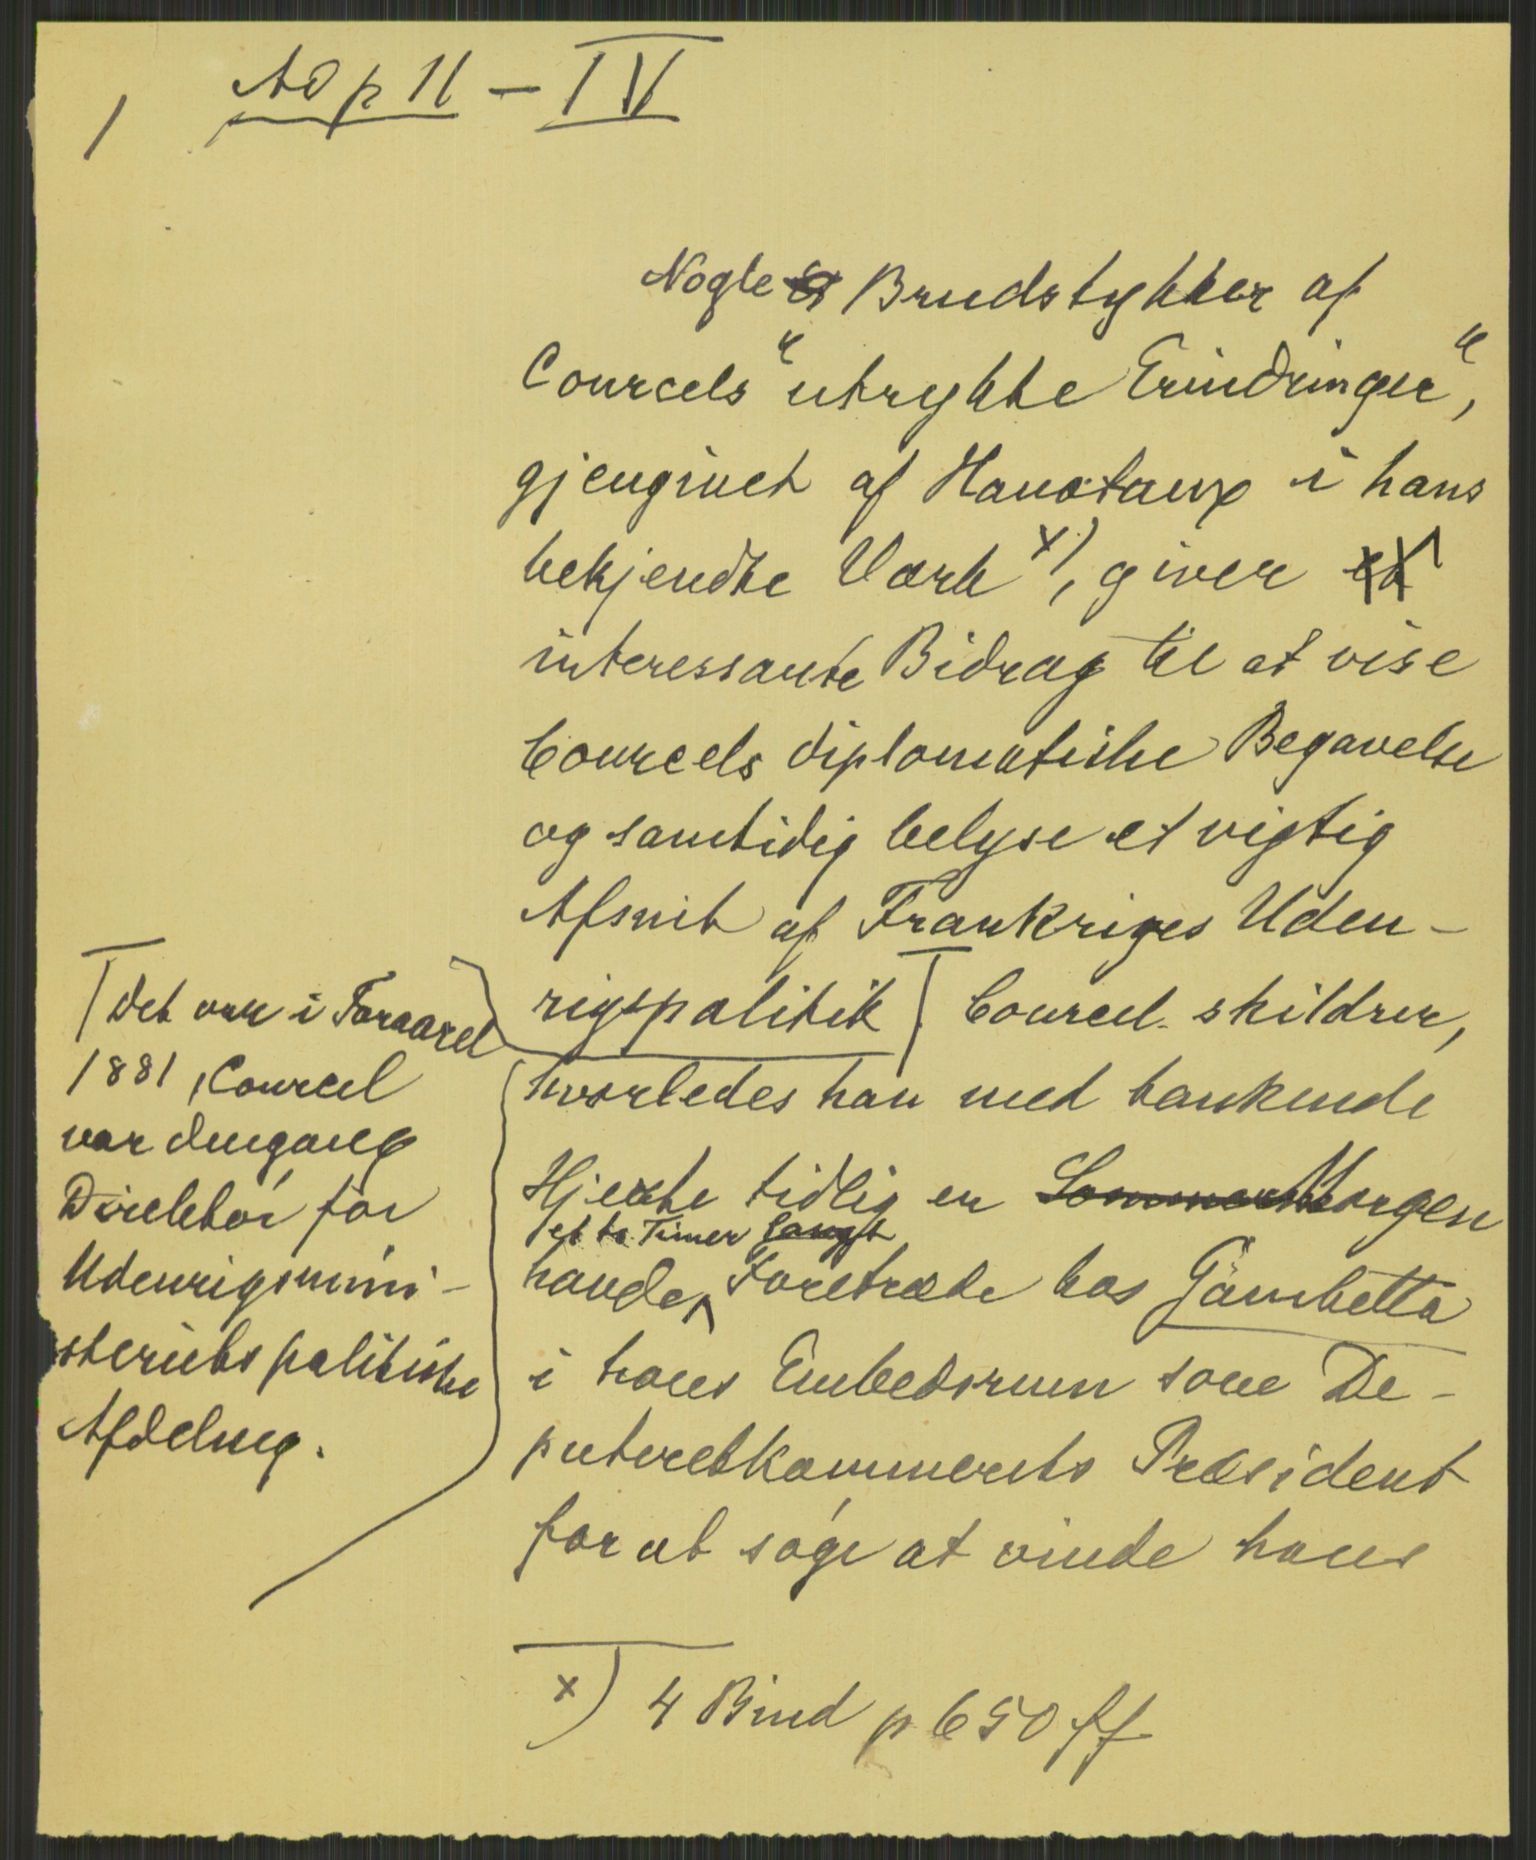 1 AD p 11 - IV
Nogle Brudstykker af
Courcels "utrykte Erindringer",
gjengivet af Hanotaux i hans
bekjendte Værk x), giver et
interessante Bidrag til at vise
Courcels diplomatiske Begavelse
og samtidig belyse et vigtig
Afsnit af Frankriges Uden-
rigspolitik. Courcel skildrer,
hvorledes han med bankende
Hjerte tidlig en Sommer Morgen
et to Timer langt
havde Foretræde hos Gambetta
i hans Embedsrum som De-
puteretkammerets Præsident
for at søge at vinde hans
Det var i Foraaret
1881, Courcel
var dengang
Direktør for
Udenrigsmini-
steriets politiske
Afdeling.
x) 4 Bind p 650 ff